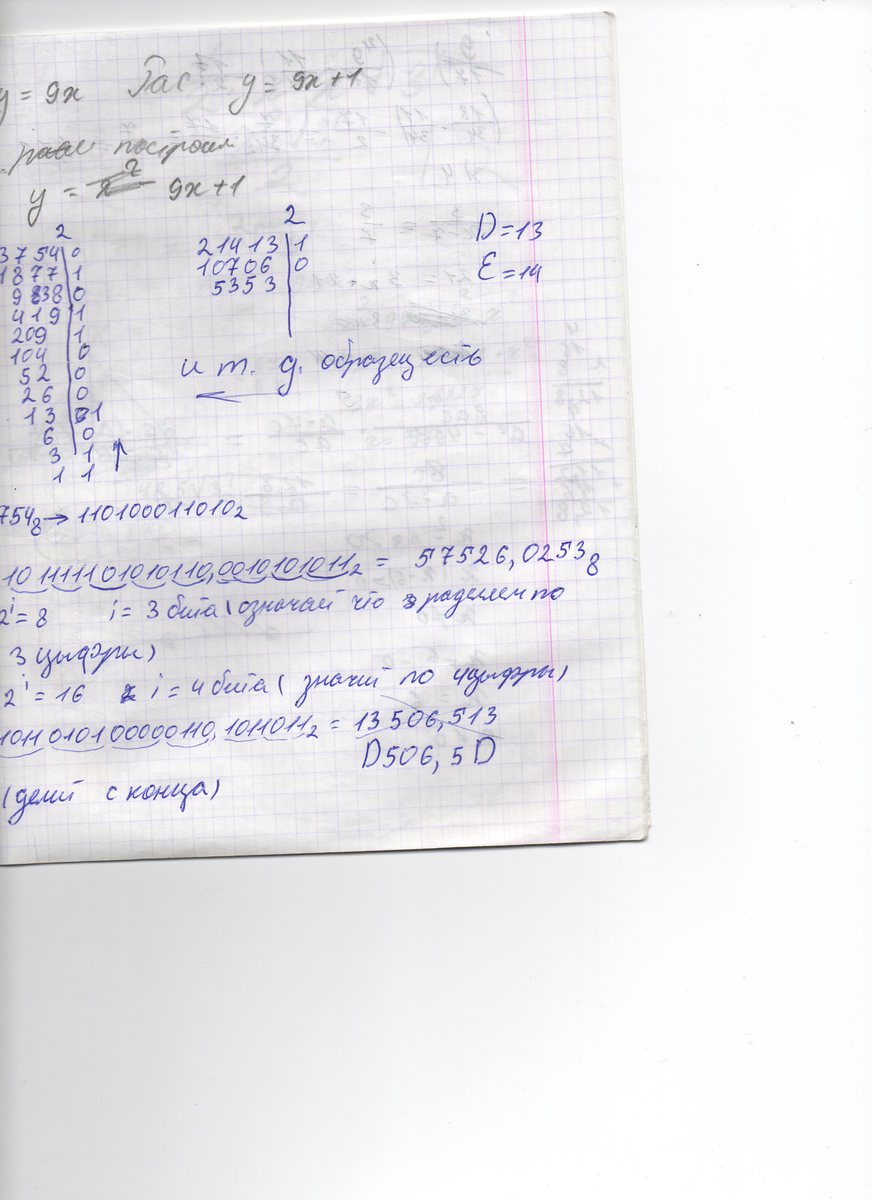 y = 9x y = 9x+1
построил
y = 9x+1
2
3754 0
1877 1
938 0
419 1
209 1
104 0
52 0
26 0
13 1
6 0
3 1
1 1
2
21413 1
10706 0
5353
D=13
E=14
и т. д. образец есть
754₈ → 110100011010₂
101111101010110,0010101011₂ = 57526,0253₈
2ⁱ=8 i= 3 бита (означай что разделен по
3 цыфры)
2ⁱ=16 i=4 бита ( значит по 4цыфры)
1011010100000110,1011011₂ = 13506,513
D506,5D
(делит с конца)